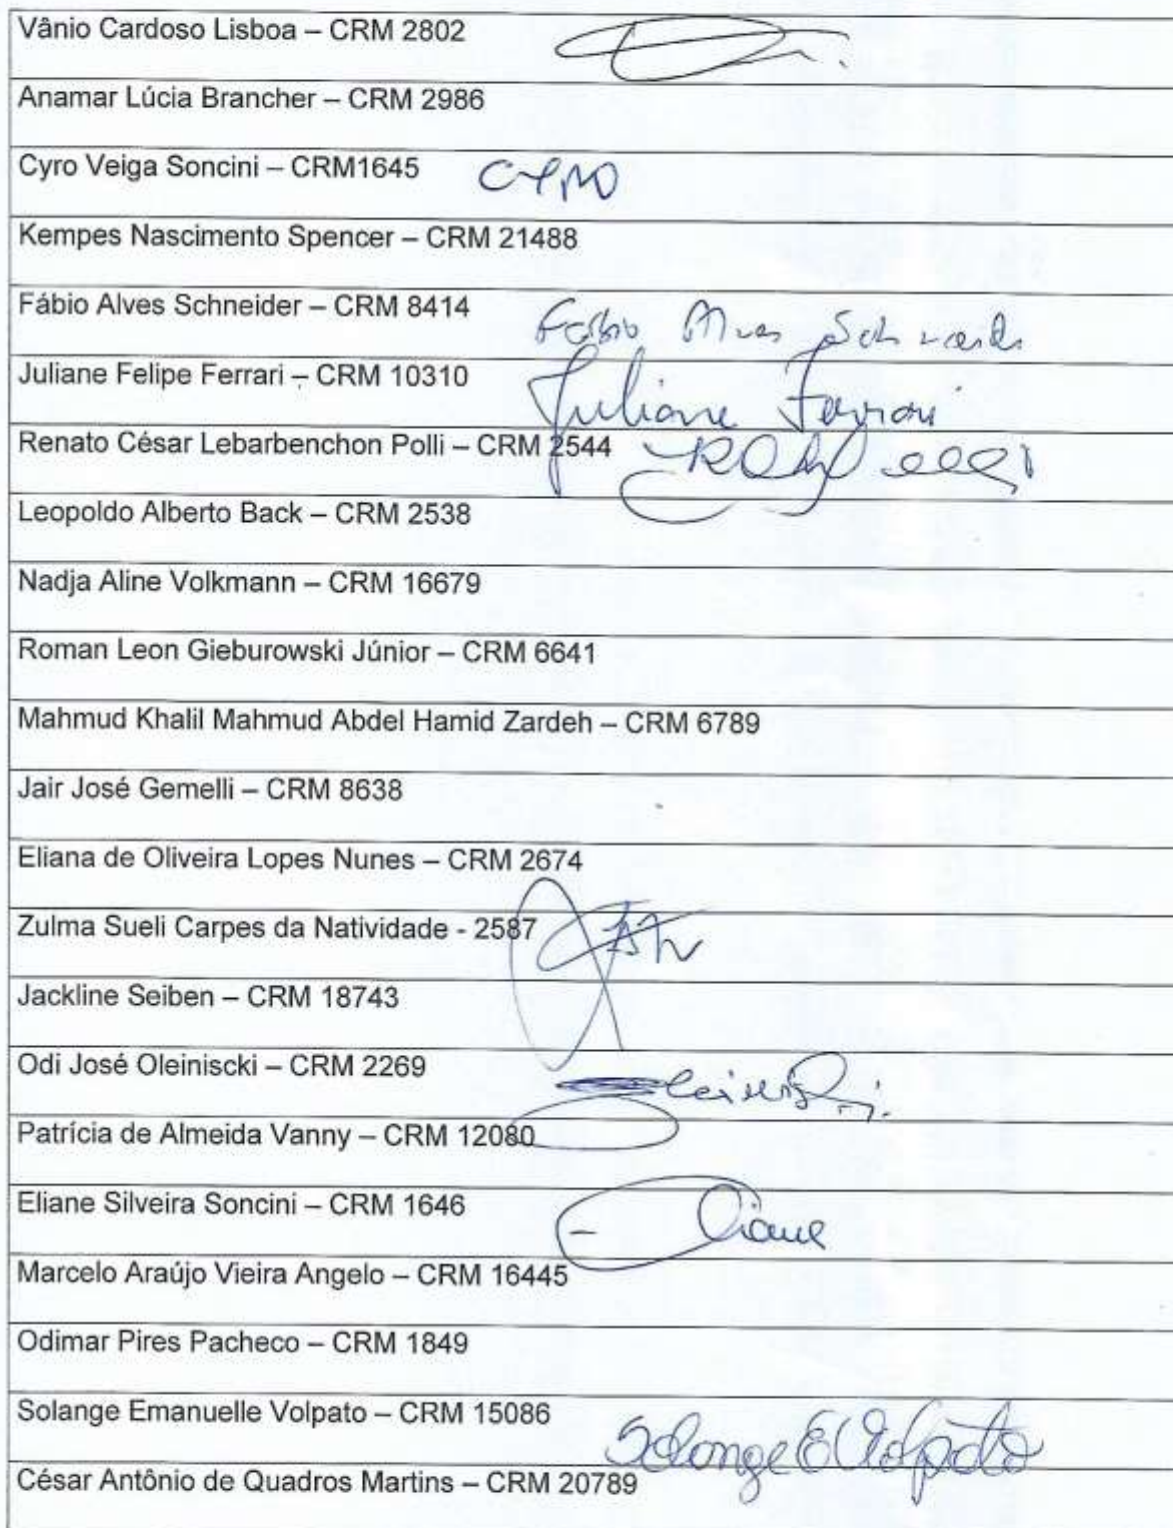 Vânio Cardoso Lisboa – CRM 2802
Anamar Lúcia Brancher – CRM 2986
Cyro Veiga Soncini – CRM1645 Cyro
Kempes Nascimento Spencer – CRM 21488
Fábio Alves Schneider – CRM 8414 Fabio Alves Schneider
Juliane Felipe Ferrari – CRM 10310 Juliane Ferrari
Renato César Lebarbenchon Polli – CRM 2544
Leopoldo Alberto Back – CRM 2538
Nadja Aline Volkmann – CRM 16679
Roman Leon Gieburowski Júnior – CRM 6641
Mahmud Khalil Mahmud Abdel Hamid Zardeh – CRM 6789
Jair José Gemelli – CRM 8638
Eliana de Oliveira Lopes Nunes – CRM 2674
Zulma Sueli Carpes da Natividade - 2587
Jackline Seiben – CRM 18743
Odi José Oleiniscki – CRM 2269
Patrícia de Almeida Vanny – CRM 12080
Eliane Silveira Soncini – CRM 1646
Marcelo Araújo Vieira Angelo – CRM 16445
Odimar Pires Pacheco – CRM 1849
Solange Emanuelle Volpato – CRM 15086 Solange E Volpato
César Antônio de Quadros Martins – CRM 20789